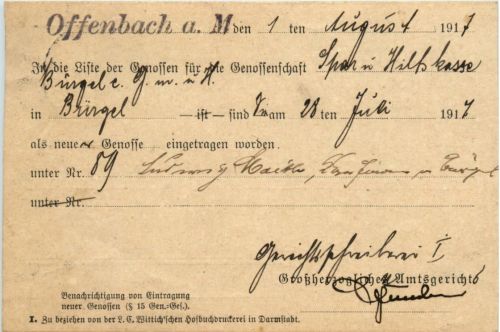 Offenbach a. M den 1 ten August 1917
In die Liste der Genossen für die Genossenschaft Spar u Hilfskasse
Bürgel e. G. m. u. H.
in Bürgel — ist — sind am 28 ten Juli 1917
als neue Genosse eingetragen worden.
unter Nr. 89 Ludwig Kaufmann in Bürgel
unter Nr.
Gerichtsschreiberei I
Großherzoglichen Amtsgerichts
Benachrichtigung von Eintragung
neuer Genossen (§ 15 Gen.-Ges.).
I. Zu beziehen von der L. C. Wittich'schen Hofbuchdruckerei in Darmstadt.